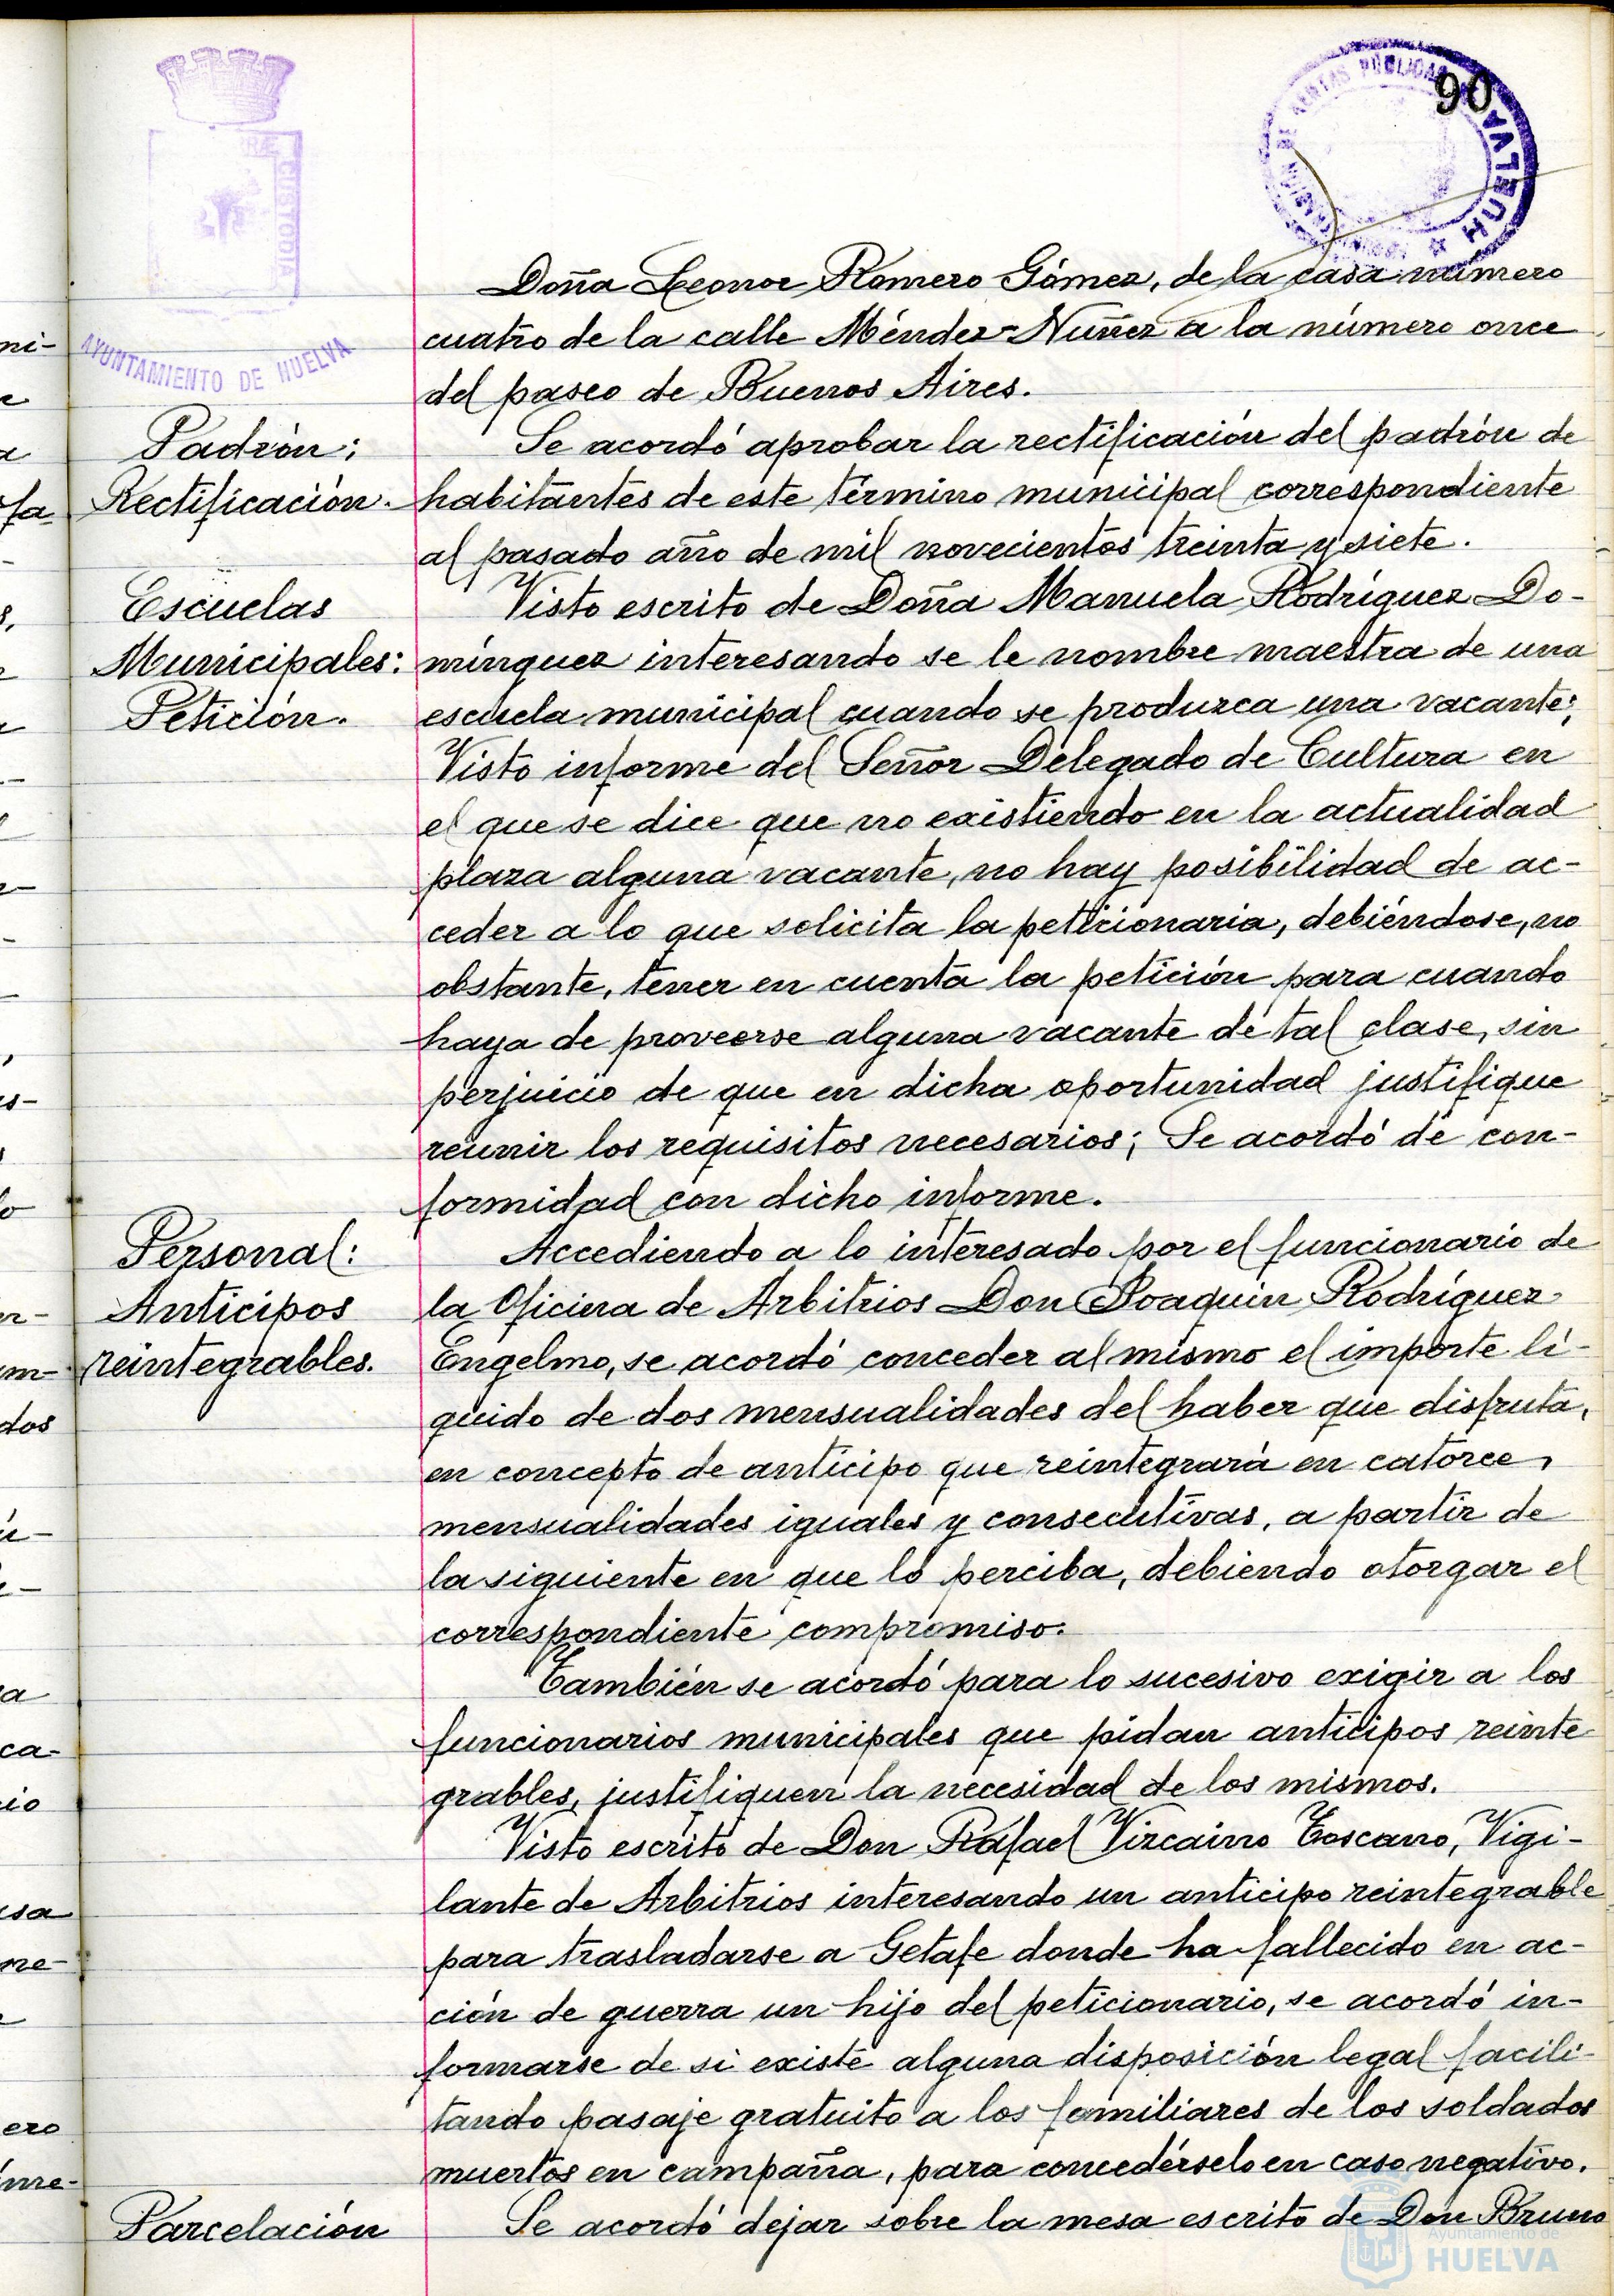 90
AYUNTAMIENTO DE HUELVA
CUSTODIA
HUELVA
Doña Leonor Romero Gómez, de la casa número
cuatro de la calle Méndez-Nuñez a la número once
del paseo de Buenos Aires.
Padrón:
Rectificación.
Se acordó aprobar la rectificación del padrón de
habitantes de este término municipal correspondiente
al pasado año de mil novecientos treinta y siete.
Escuelas
Municipales:
Petición.
Visto escrito de Doña Manuela Rodríguez Do-
mínguez interesando se le nombre maestra de una
escuela municipal cuando se produzca una vacante;
Visto informe del Señor Delegado de Cultura en
el que se dice que no existiendo en la actualidad
plaza alguna vacante, no hay posibilidad de ac-
ceder a lo que solicita la peticionaria, debiéndose, no
obstante, tener en cuenta la petición para cuando
haya de proveerse alguna vacante de tal clase, sin
perjuicio de que en dicha oportunidad justifique
reunir los requisitos necesarios; Se acordó de con-
formidad con dicho informe.
Personal:
Anticipos
reintegrables.
Accediendo a lo interesado por el funcionario de
la Oficina de Arbitrios Don Joaquin Rodríguez
Engelmo, se acordó conceder al mismo el importe lí-
quido de dos mensualidades del haber que disfruta,
en concepto de anticipo que reintegrará en catorce
mensualidades iguales y consecutivas, a partir de
la siguiente en que lo perciba, debiendo otorgar el
correspondiente compromiso.
También se acordó para lo sucesivo exigir a los
funcionarios municipales que pidan anticipos reinte
grables, justifiquen la necesidad de los mismos.
Visto escrito de Don Rafael Vizcaino Toscano, Vigi-
lante de Arbitrios interesando un anticipo reintegrable
para trasladarse a Getafe donde ha fallecido en ac-
ción de guerra un hijo del peticionario, se acordó in-
formarse de si existe alguna disposición legal facili-
tando pasaje gratuito a los familiares de los soldados
muertos en campaña, para concedérselo en caso negativo.
Parcelación
Se acordó dejar sobre la mesa escrito de Don Bruno
Ayuntamiento de
HUELVA